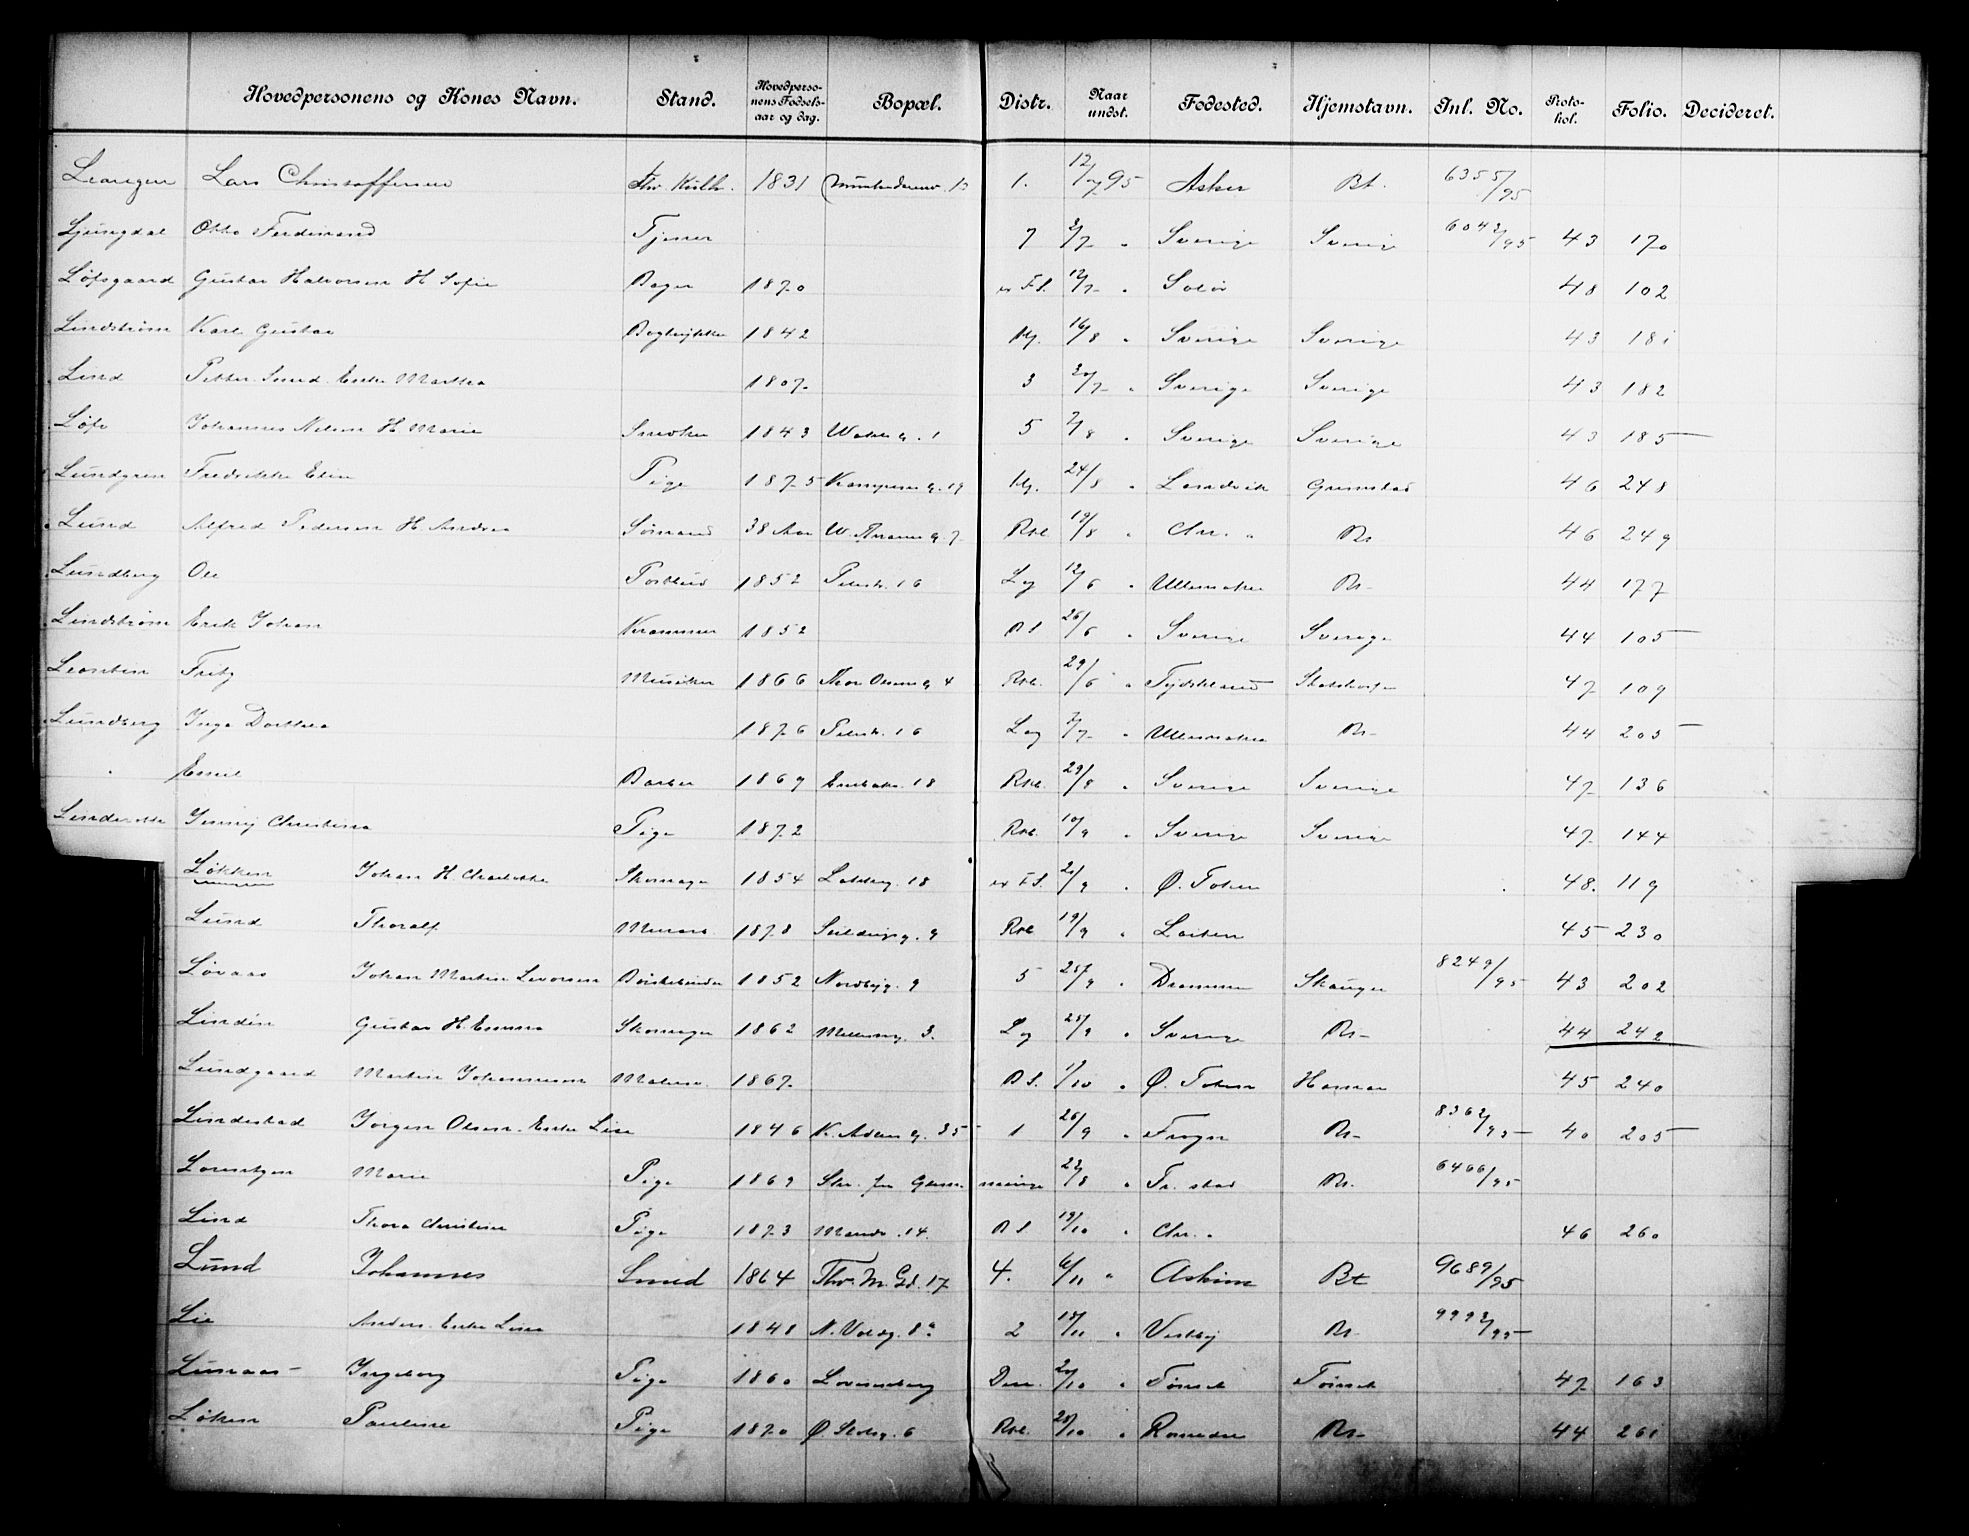 Hovedpersonens og Kones Navn. Stand. Hovedpersonens Fødselsaar og dag. Bopæl. Distr. Naar undst. Fødested. Hjemstavn. Inl. No. Protokol. Folio. Decideret.
Lars Christoffersen 1831 1. 12/7 95 Asker Bt. 6355/95
Ljungdal Otto Ferdinand Tjener 7 2/7 " Sverige Sverige 6042/95 43 170
Løfsgaard Gustav Halvorsen H Sofie Bager 1870 ex F.S. 12/7 " Solør 48 102
Lindstrøm Karl Gustav Bogtrykker 1842 Hj. 16/8 " Sverige Sverige 43 181
Lind Petter Smed. Enke Martha 1807 3 20/7 " Sverige Sverige 43 182
Johannes Nilsen H Marie Snedker 1843 5 7/8 " Sverige Sverige 43 185
Lundgren Fredrikke Elin Pige 1875 Kampens g. 19 Hj. 24/8 " Landvik Grimstad 46 248
Lund Alfred Pedersen H Andrea Sømand 38 Aar W. Thranes g. 7 Rkl. 19/8 " Chr. " Br 46 249
Lundberg Ole Postbud 1852 Pilestr. 16 Log 12/6 " Ullensaker Br 44 177
Lindstrøm Erik Johan Kræmmer 1852 B S 26/6 " Sverige Sverige 44 105
Fritz Musiker 1866 Thor Olsens g 4 Rkl. 29/6 " Tydskland 47 109
Lundberg Inga Dorthea 1876 Pilestr. 16 Log 2/7 " Ullensaker Br 44 205
" Emil Barber 1869 Enebakv. 18 Rkl. 29/8 " Sverige Sverige 47 136
Jenny Christina Pige 1872 Rkl. 10/9 " Sverige Sverige 47 144
Løkken Johan H. Charlotte Skomager 1854 18 ex F.S. 2/9 " Ø. Toten 48. 119
Lund Thoralf Murarb. 1878 Seildugsg. 9 Rkl 19/9 " Laurvig 45 230
Løvaas Johan Martin Levorsen Børstebinder 1852 Nordbyg. 9 5 25/9 " Drammen Skauger 8249/95 43 202
Lindin Gustav H. Emma Skomager 1862 Møllerveg. 3. Log 25/9 " Sverige Br 44 242
Lundgaard Martin Johannesen Malersv. 1867 B S. 1/10 " Ø. Toten Hamar 45 240
Lindestad Jørgen Olsen. Enke Lise 1846 K. Adlers g. 35 1 26/9 " Frogn Br 8362/95 40 205
Lorentzen Marie Pige 1869 22/8 " Fr. stad Br. 6466/95
Lind Thora Christine Pige 1873 14. B S 19/10 " Chr. " 46 260
Lund Johannes Smed 1864 Thv. M. Gd. 17 4. 6/11 " Askim Bt 9689/95
Lie Anders. Enke Lina 1848 N. Voldg. 8a 2 15/11 " Vestby Br 9992/95
Lunaas Ingeborg Pige 1860 Lovisenberg Den. 20/10 " Tønset Tønset 47 163
Løken Pauline Pige 1870 Ø. Slotsg. 6 Rkl. 25/10 " Romedal Br 44 261